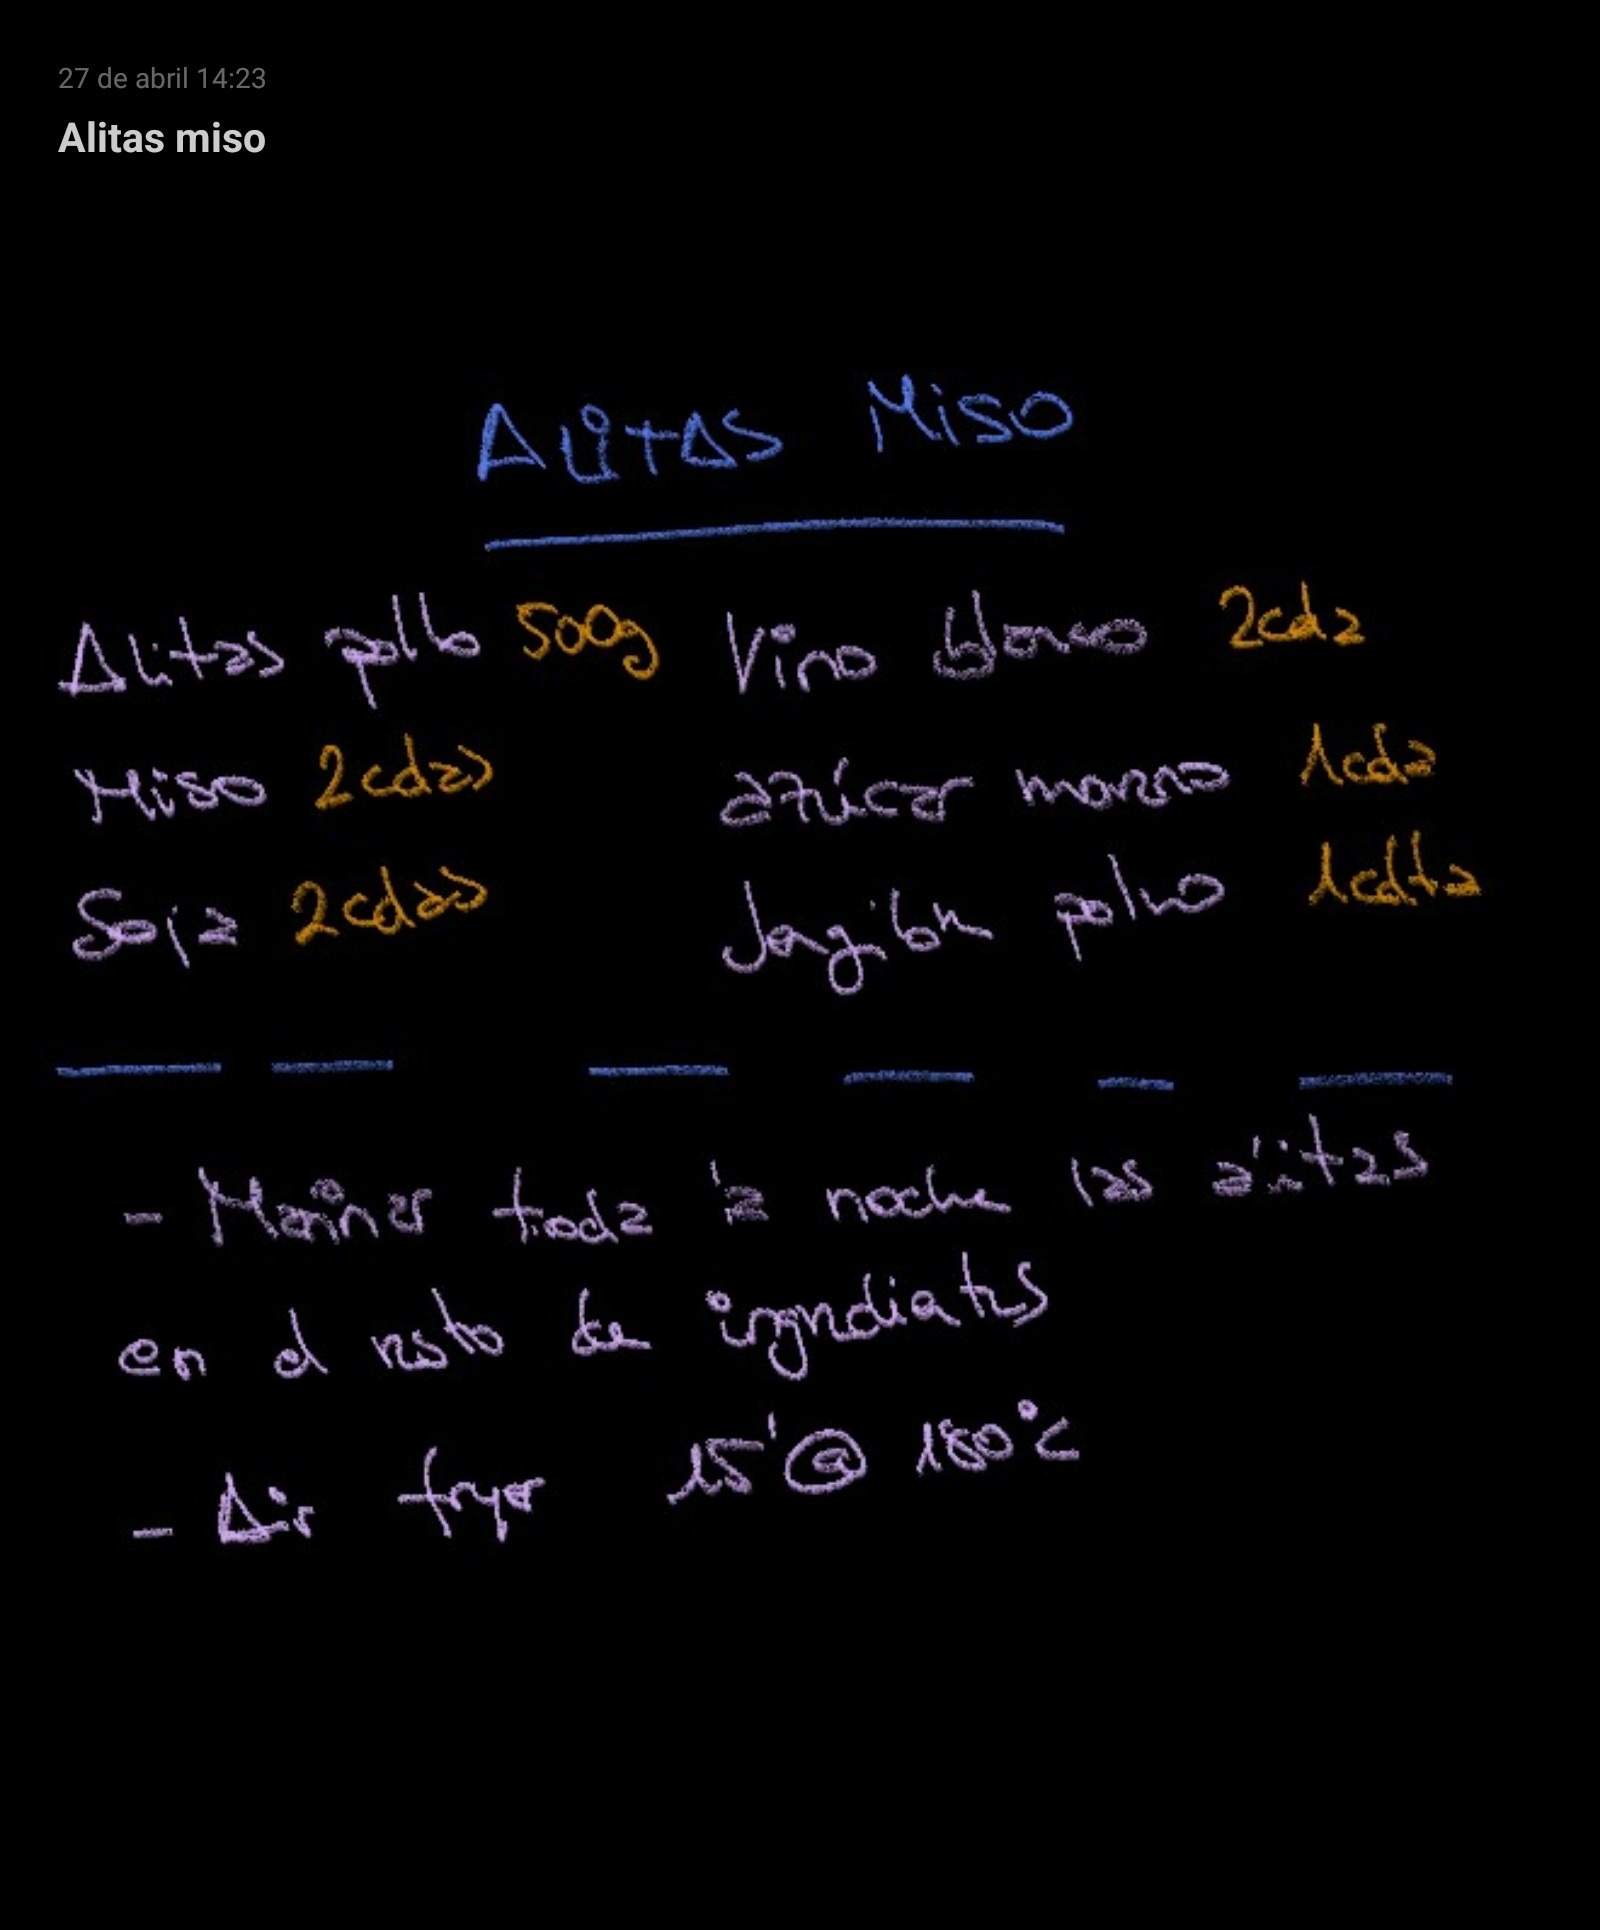 27 de abril 14:23
Alitas miso
ALITAS MISO
Alitas pollo 500g
Vino blanco 2cda
Miso 2cdas
azúcar moreno 1cda
Soja 2cdas
Jengibre polvo 1cdta
- Mariner toda la noche las alitas
en el resto de ingredientes
- Air fryer 15' @ 180°C